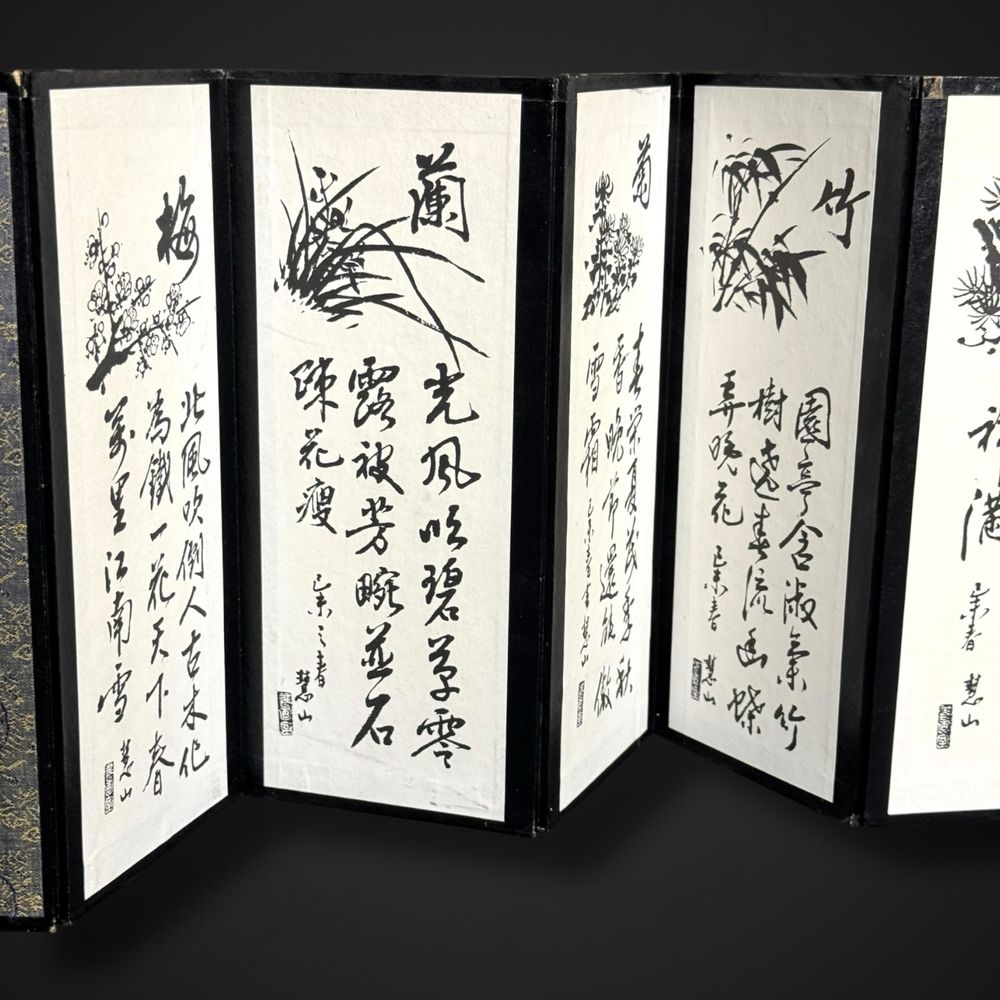 梅
北風吹倒人古木化
為鐵一花天下春
萬里江南雪
慧山
蘭
光風吹碧草零
露被芳畹並石
疎花瘦
己未之春
慧山
菊
春榮夏茂季秋
香晚節還能傲
雪霜
己未春
慧山
竹
園亭含淑氣竹
樹遶春流幽蝶
弄晚花
己未春
慧山
滿
己未春
慧山